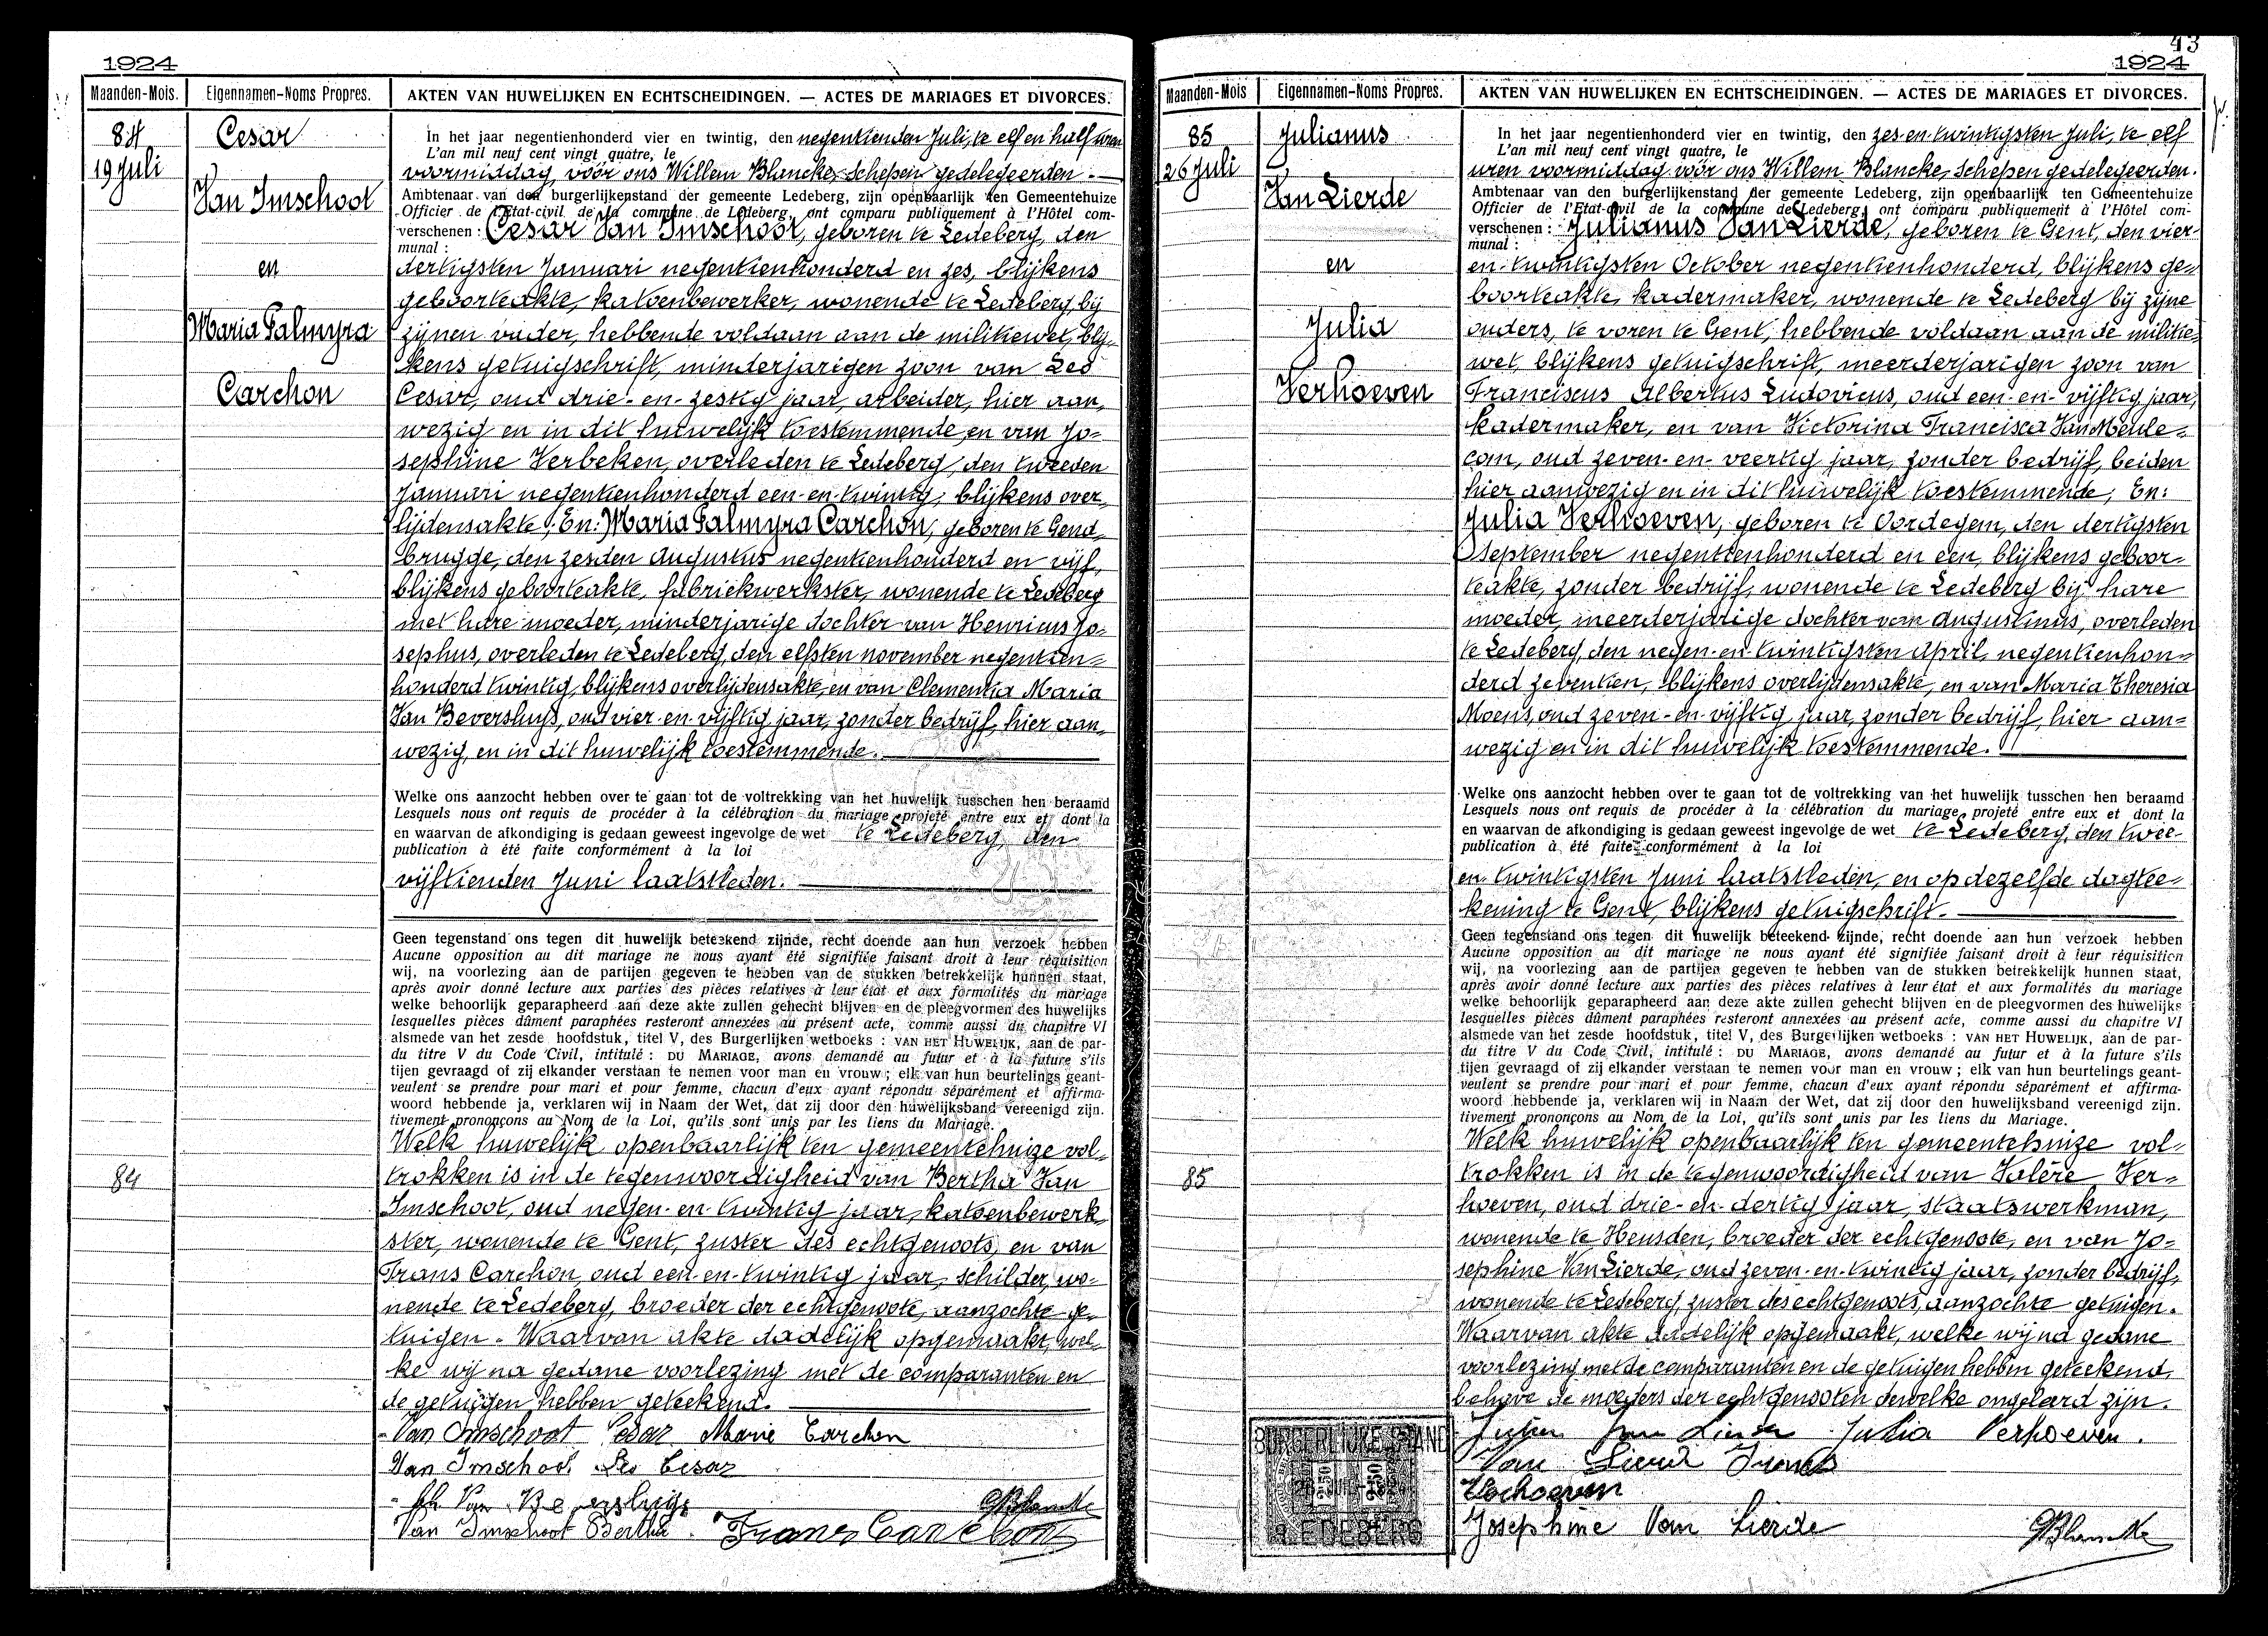 1924
Maanden-Mois.
Eigennamen-Noms Propres.
AKTEN VAN HUWELIJKEN EN ECHTSCHEIDINGEN. — ACTES DE MARIAGES ET DIVORCES.
84
19 Juli
Cesar
Van Imschoot
en
Maria Palmyra
Carchon
In het jaar negentienhonderd vier en twintig, den negentienden Juli, te elf en half uren
L'an mil neuf cent vingt quatre, le
voormiddag, vóór ons Willem Blancke, Schepen gedelegeerden.
Ambtenaar van den burgerlijkenstand der gemeente Ledeberg, zijn openbaarlijk ten Gemeentehuize
Officier de l'Etat-civil de la commune de Ledeberg, ont comparu publiquement à l'Hôtel com-
verschenen : Cesar Van Imschoot, geboren te Ledeberg, den
munal :
dertigsten Januari negentienhonderd en zes, blijkens
geboorteakte, katoenbewerker, wonende te Ledeberg, bij
zijnen vader, hebbende voldaan aan de militiewet, blij-
kens getuigschrift, minderjarigen zoon van Leo
Cesar, oud drie-en-zestig jaar, arbeider, hier aan-
wezig en in dit huwelijk toestemmende, en van Jo-
sephine Verbeken, overleden te Ledeberg, den tweeden
Januari negentienhonderd een-en-twintig, blijkens over-
lijdensakte; En: Maria Palmyra Carchon, geboren te Gend-
brugge, den zesden Augustus negentienhonderd en vijf,
blijkens geboorteakte, fabriekwerkster, wonende te Ledeberg
met hare moeder, minderjarige dochter van Henricus Jo-
sephus, overleden te Ledeberg, den elfsten november negentien-
honderd twintig, blijkens overlijdensakte, en van Clementia Maria
Van Beversluys, oud vier-en-vijftig jaar, zonder bedrijf, hier aan-
wezig, en in dit huwelijk toestemmende.
Welke ons aanzocht hebben over te gaan tot de voltrekking van het huwelijk tusschen hen beraamd
Lesquels nous ont requis de procéder à la célébration du mariage projeté entre eux et dont la
en waarvan de afkondiging is gedaan geweest ingevolge de wet te Ledeberg, den
publication à été faite conformément à la loi
vijftienden Juni laatstleden.
Geen tegenstand ons tegen dit huwelijk beteekend zijnde, recht doende aan hun verzoek hebben
Aucune opposition au dit mariage ne nous ayant été signifiée faisant droit à leur réquisition
wij, na voorlezing aan de partijen gegeven te hebben van de stukken betrekkelijk hunnen staat,
après avoir donné lecture aux parties des pièces relatives à leur état et aux formalités du mariage
welke behoorlijk geparapheerd aan deze akte zullen gehecht blijven en de pleegvormen des huwelijks
lesquelles pièces dûment paraphées resteront annexées au présent acte, comme aussi du chapitre VI
alsmede van het zesde hoofdstuk, titel V, des Burgerlijken wetboeks : VAN HET HUWELIJK, aan de par-
du titre V du Code Civil, intitulé : DU MARIAGE, avons demandé au futur et à la future s'ils
tijen gevraagd of zij elkander verstaan te nemen voor man en vrouw ; elk van hun beurtelings geant-
veulent se prendre pour mari et pour femme, chacun d'eux ayant répondu séparément et affirma-
woord hebbende ja, verklaren wij in Naam der Wet, dat zij door den huwelijksband vereenigd zijn.
tivement prononçons au Nom de la Loi, qu'ils sont unis par les liens du Mariage.
84
Welk huwelijk openbaarlijk ten gemeentehuize vol-
trokken is in de tegenwoordigheid van Bertha Van
Imschoot, oud negen-en-twintig jaar, katoenbewerk-
ster, wonende te Gent, zuster des echtgenoots, en van
Frans Carchon, oud een-en-twintig jaar, schilder, wo-
nende te Ledeberg, broeder der echtgenoote, aanzochte ge-
tuigen. Waarvan akte dadelijk opgemaakt, wel-
ke wij na gedane voorlezing met de comparanten en
de getuigen hebben geteekend.
Van Imschoot Cesar Marie Carchon
Van Imschoot Leo Cesar
Van Beversluijs GBlancke
Van Imschoot Bertha. Frans Carchon
43
1924
Maanden-Mois
Eigennamen-Noms Propres.
AKTEN VAN HUWELIJKEN EN ECHTSCHEIDINGEN. — ACTES DE MARIAGES ET DIVORCES.
85
26 Juli
Julianus
Van Lierde
en
Julia
Verhoeven
In het jaar negentienhonderd vier en twintig, den zes-en-twintigsten Juli, te elf
L'an mil neuf cent vingt quatre, le
uren voormiddag vóór ons Willem Blancke, Schepen gedelegeerden.
Ambtenaar van den burgerlijkenstand der gemeente Ledeberg, zijn openbaarlijk ten Gemeentehuize
Officier de l'Etat-civil de la commune de Ledeberg, ont comparu publiquement à l'Hôtel com-
verschenen : Julianus Van Lierde, geboren te Gent, den vier-
munal :
en-twintigsten October negentienhonderd, blijkens ge-
boorteakte, kadermaker, wonende te Ledeberg bij zijne
ouders, te voren te Gent, hebbende voldaan aan de militie-
wet, blijkens getuigschrift, meerderjarigen zoon van
Franciscus Albertus Ludovicus, oud een-en-vijftig jaar,
kadermaker, en van Victorina Francisca Van Meule-
com, oud zeven-en-veertig jaar, zonder bedrijf, beiden
hier aanwezig en in dit huwelijk toestemmende; En:
Julia Verhoeven, geboren te Oordegem, den dertigsten
September negentienhonderd en een, blijkens geboor-
teakte, zonder bedrijf, wonende te Ledeberg bij hare
moeder, meerderjarige dochter van Augustinus, overleden
te Ledeberg, den negen-en-twintigsten April, negentienhon-
derd zeventien, blijkens overlijdensakte, en van Maria Theresia
Moens, oud zeven-en-vijftig jaar, zonder bedrijf, hier aan-
wezig en in dit huwelijk toestemmende.
Welke ons aanzocht hebben over te gaan tot de voltrekking van het huwelijk tusschen hen beraamd
Lesquels nous ont requis de procéder à la célébration du mariage projeté entre eux et dont la
en waarvan de afkondiging is gedaan geweest ingevolge de wet te Ledeberg, den twee-
publication à été faite conformément à la loi
en-twintigsten Juni laatstleden, en op dezelfde dagtee-
kening te Gent, blijkens getuigschrift.
Geen tegenstand ons tegen dit huwelijk beteekend zijnde, recht doende aan hun verzoek hebben
Aucune opposition au dit mariage ne nous ayant été signifiée faisant droit à leur réquisition
wij, na voorlezing aan de partijen gegeven te hebben van de stukken betrekkelijk hunnen staat,
après avoir donné lecture aux parties des pièces relatives à leur état et aux formalités du mariage
welke behoorlijk geparapheerd aan deze akte zullen gehecht blijven en de pleegvormen des huwelijks
lesquelles pièces dûment paraphées resteront annexées au présent acte, comme aussi du chapitre VI
alsmede van het zesde hoofdstuk, titel V, des Burgerlijken wetboeks : VAN HET HUWELIJK, aan de par-
du titre V du Code Civil, intitulé : DU MARIAGE, avons demandé au futur et à la future s'ils
tijen gevraagd of zij elkander verstaan te nemen voor man en vrouw ; elk van hun beurtelings geant-
veulent se prendre pour mari et pour femme, chacun d'eux ayant répondu séparément et affirma-
woord hebbende ja, verklaren wij in Naam der Wet, dat zij door den huwelijksband vereenigd zijn.
tivement prononçons au Nom de la Loi, qu'ils sont unis par les liens du Mariage.
85
Welk huwelijk openbaarlijk ten gemeentehuize vol-
trokken is in de tegenwoordigheid van Valère Ver-
hoeven, oud drie-en-dertig jaar, staatswerkman,
wonende te Heusden, broeder der echtgenoote, en van Jo-
sephine Van Lierde, oud zeven-en-twintig jaar, zonder bedrijf,
wonende te Ledeberg, zuster des echtgenoots, aanzochte getuigen.
Waarvan akte dadelijk opgemaakt, welke wij na gedane
voorlezing met de comparanten en de getuigen hebben geteekend,
behalve de moeders der echtgenooten dewelke ongeleerd zijn.
Julien Van Lierde Julia Verhoeven.
Van Lierde Frans
Verhoeven
Josephine Van Lierde GBlancke
BURGERLIJKE STAND
LEDEBERG